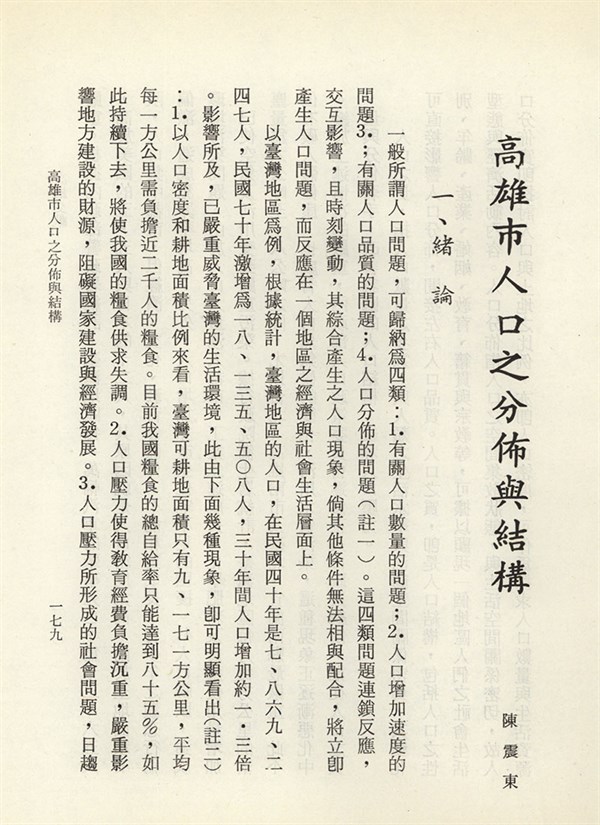 高雄市人口之分佈與結構
陳震東
一、緒論
一般所謂人口問題，可歸納爲四類：1.有關人口數量的問題；2.人口增加速度的
問題3.；有關人口品質的問題；4.人口分佈的問題（註一）。這四類問題連鎖反應，
交互影響，且時刻變動，其綜合產生之人口現象，倘其他條件無法相與配合，將立卽
產生人口問題，而反應在一個地區之經濟與社會生活層面上。
以臺灣地區爲例，根據統計，臺灣地區的人口，在民國四十年是七、八六九、二
四七人，民國七十年激增爲一八、一三五、五〇八人，三十年間人口增加約一・三倍
。影響所及，已嚴重威脅臺灣的生活環境，此由下面幾種現象，卽可明顯看出（註二）
：1.以人口密度和耕地面積比例來看，臺灣可耕地面積只有九、一七一方公里，平均
每一方公里需負擔近二千人的糧食。目前我國糧食的總自給率只能達到八十五%，如
此持續下去，將使我國的糧食供求失調。2.人口壓力使得敎育經費負擔沉重，嚴重影
響地方建設的財源，阻礙國家建設與經濟發展。3.人口壓力所形成的社會問題，日趨
高雄市人口之分佈與結構
一七九